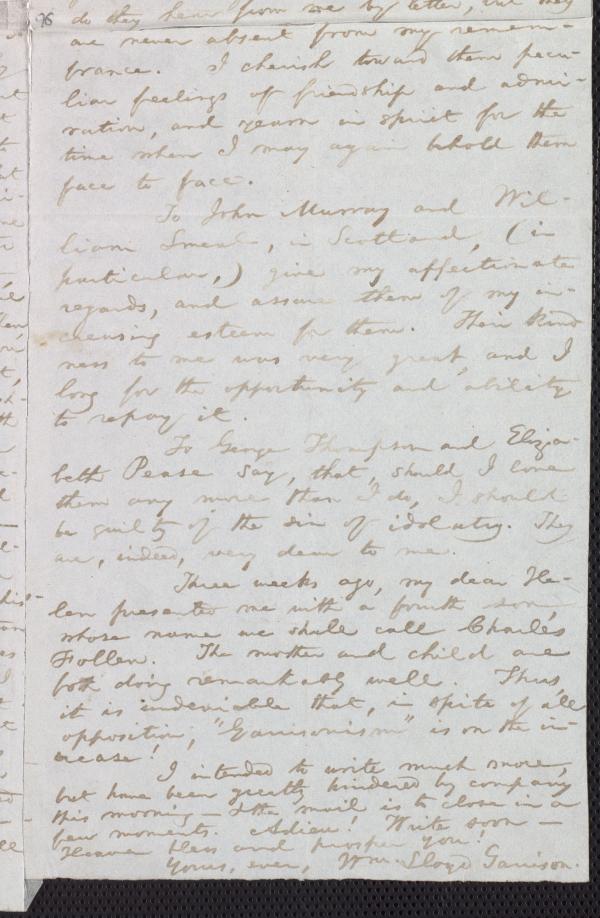 96
do they hear from me by letter, but they
are never absent from my remem-
brance. I cherish toward them pecu-
liar feelings of friendship and admi-
ration, and yearn in spirit for the
time when I may again behold them
face to face.
To John Murray and Wil-
liam Smeal, in Scotland, (in
particular,) give my affectionate
regards, and assure them of my in-
creasing esteem for them. Their kind
ness to me was very great, and I
long for the opportunity and ability
to repay it.
To George Thompson and Eliza-
beth Pease say, that, should I love
them any more than I do, I should
be guilty of the sin of idolatry. They
are, indeed, very dear to me.
Three weeks ago, my dear He-
len presented me with a fourth son,
whose name we shall call Charles
Follen. The mother and child are
both doing remarkably well. Thus,
it is undeniable that, in spite of all
opposition, "Garrisonism" is on the in-
crease!
I intended to write much more,
but have been greatly hindered by company
this morning — & the mail is to close in a
few moments. Adieu! Write soon —
Heaven bless and prosper you!
Yours, ever, Wm. Lloyd Garrison.